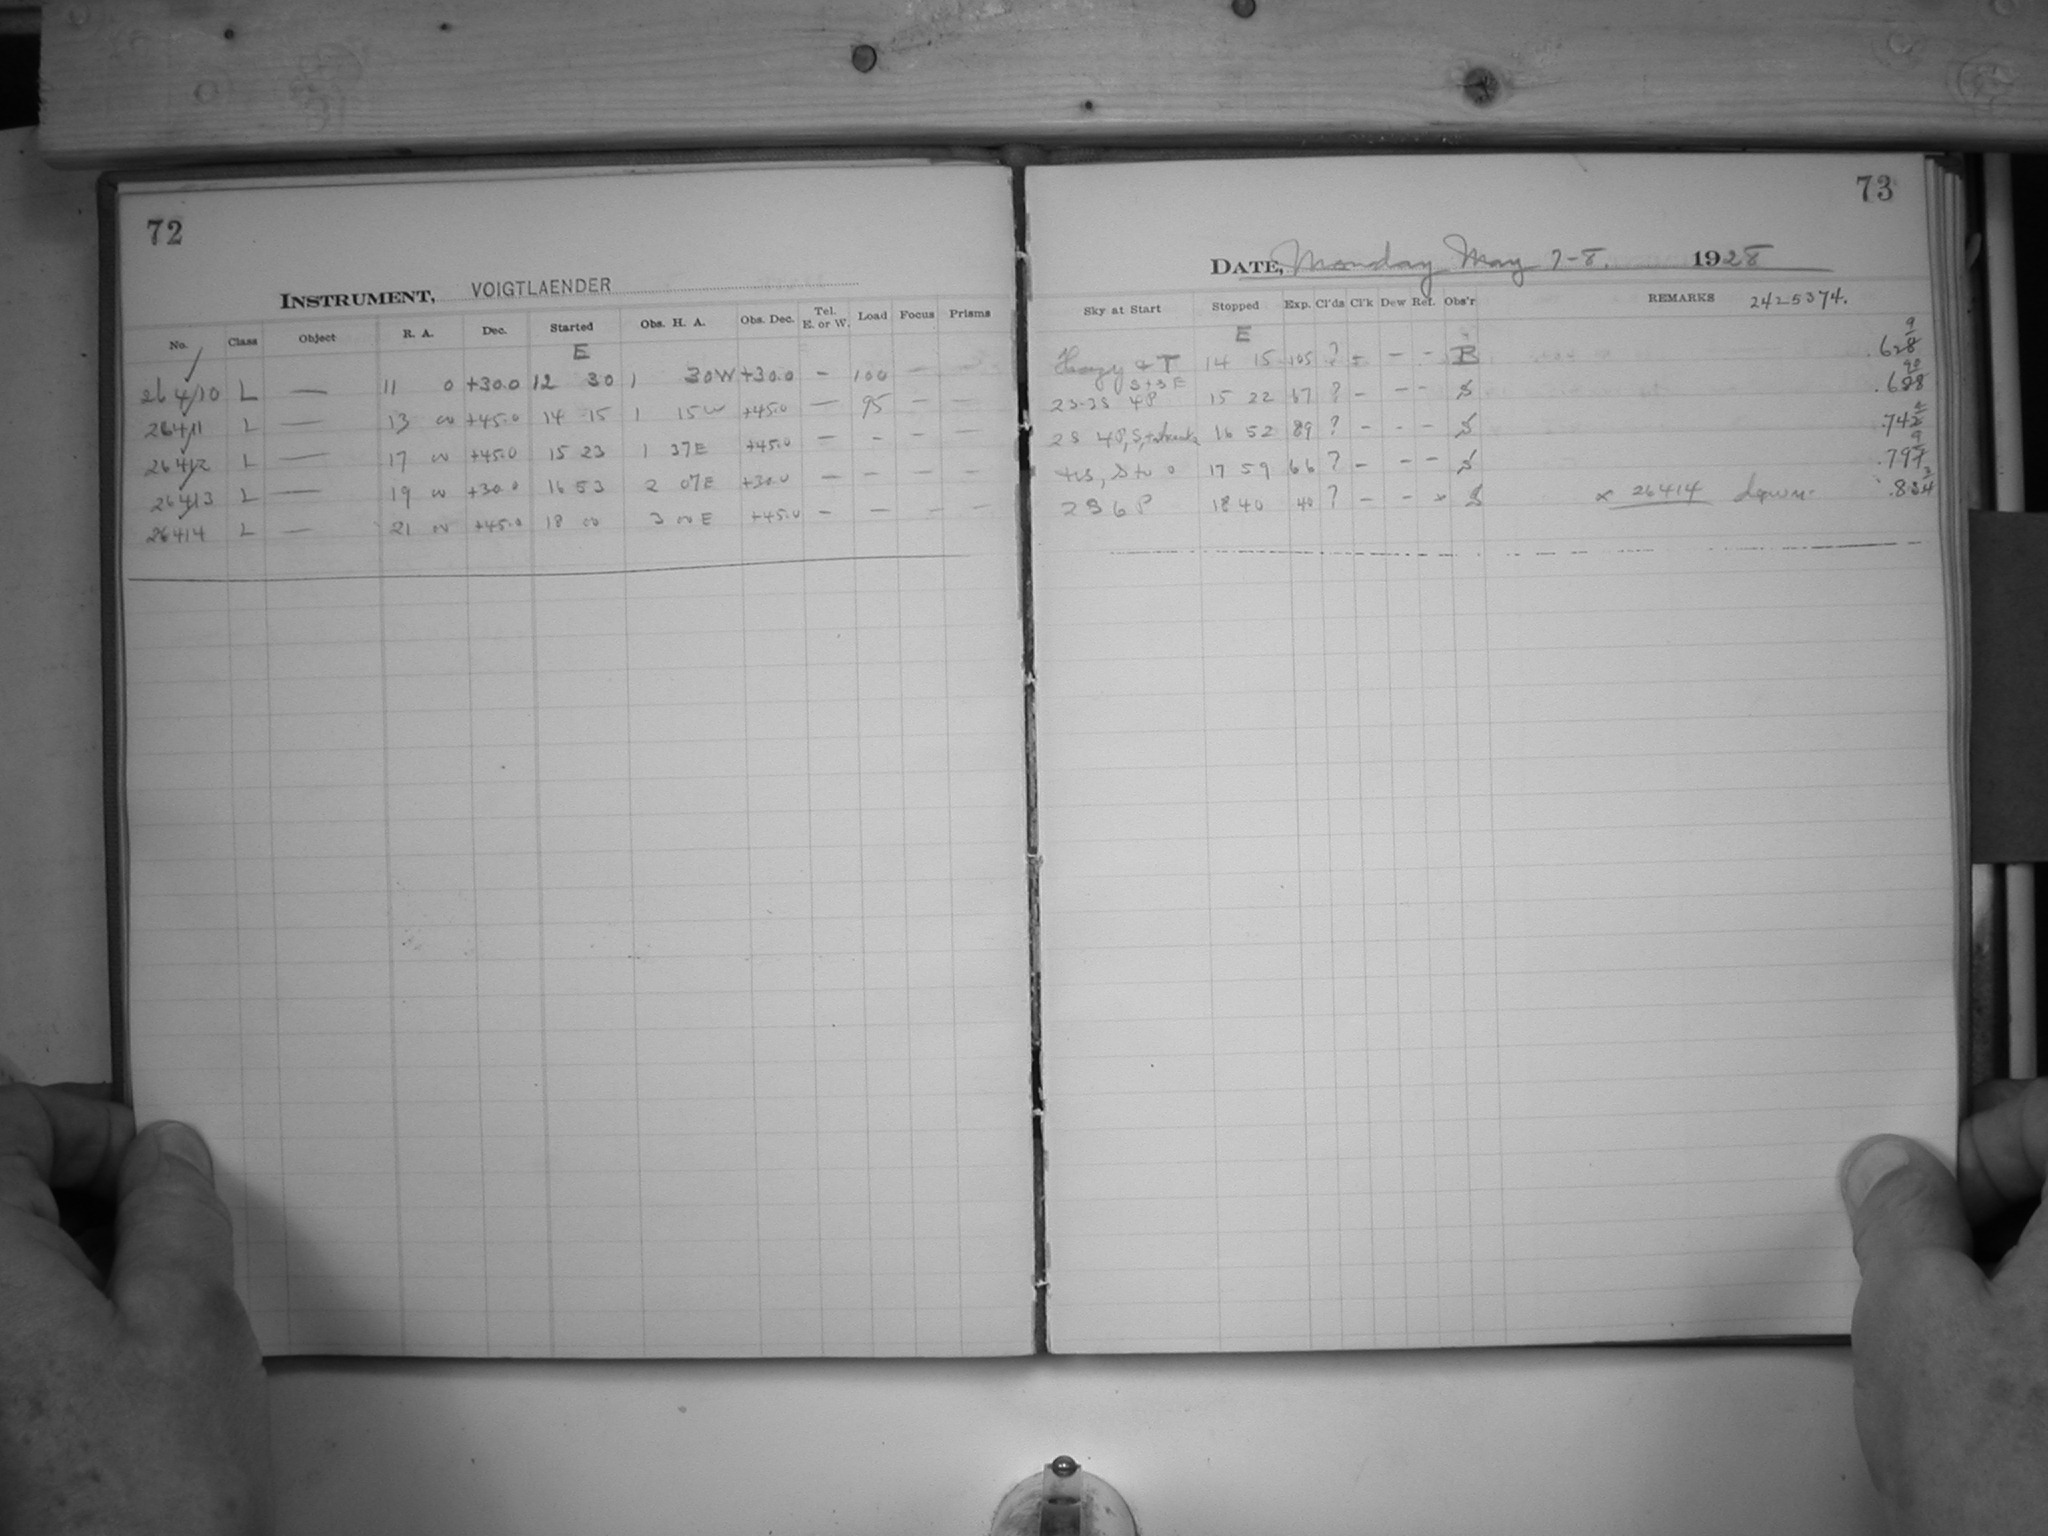 72
INSTRUMENT, VOIGTLAENDER
No. Class Object R. A. Dec. Started Obs. H. A. Obs. Dec. Tel. E. or W. Load Focus Prisms
E
26410 L — 11 0 +30.0 12 30 1 30W +30.0 — 100 — —
26411 L — 13 00 +45.0 14 15 1 15W +45.0 — 95 — —
26412 L — 17 00 +45.0 15 23 1 37E +45.0 — - - —
26413 L — 19 00 +30.0 16 53 2 07E +30.0 — — — —
26414 L — 21 00 +45.0 18 00 3 00E +45.0 — — - —
73
DATE, Monday May 7-8. 1928
Sky at Start Stopped Exp. Cl'ds Cl'k Dew Ref. Obs'r REMARKS 2425374.
E
Hazy & T 14 15 105 ? - — - B .628 9
S+SE
2S-3S 4P 15 22 67 ? — - - S .688 90
2S 4P, S, 16 52 89 ? — - - S .742
17 59 66 ? — - — S .797 9
2S 6P 18 40 40 ? — - x S x 26414 .834